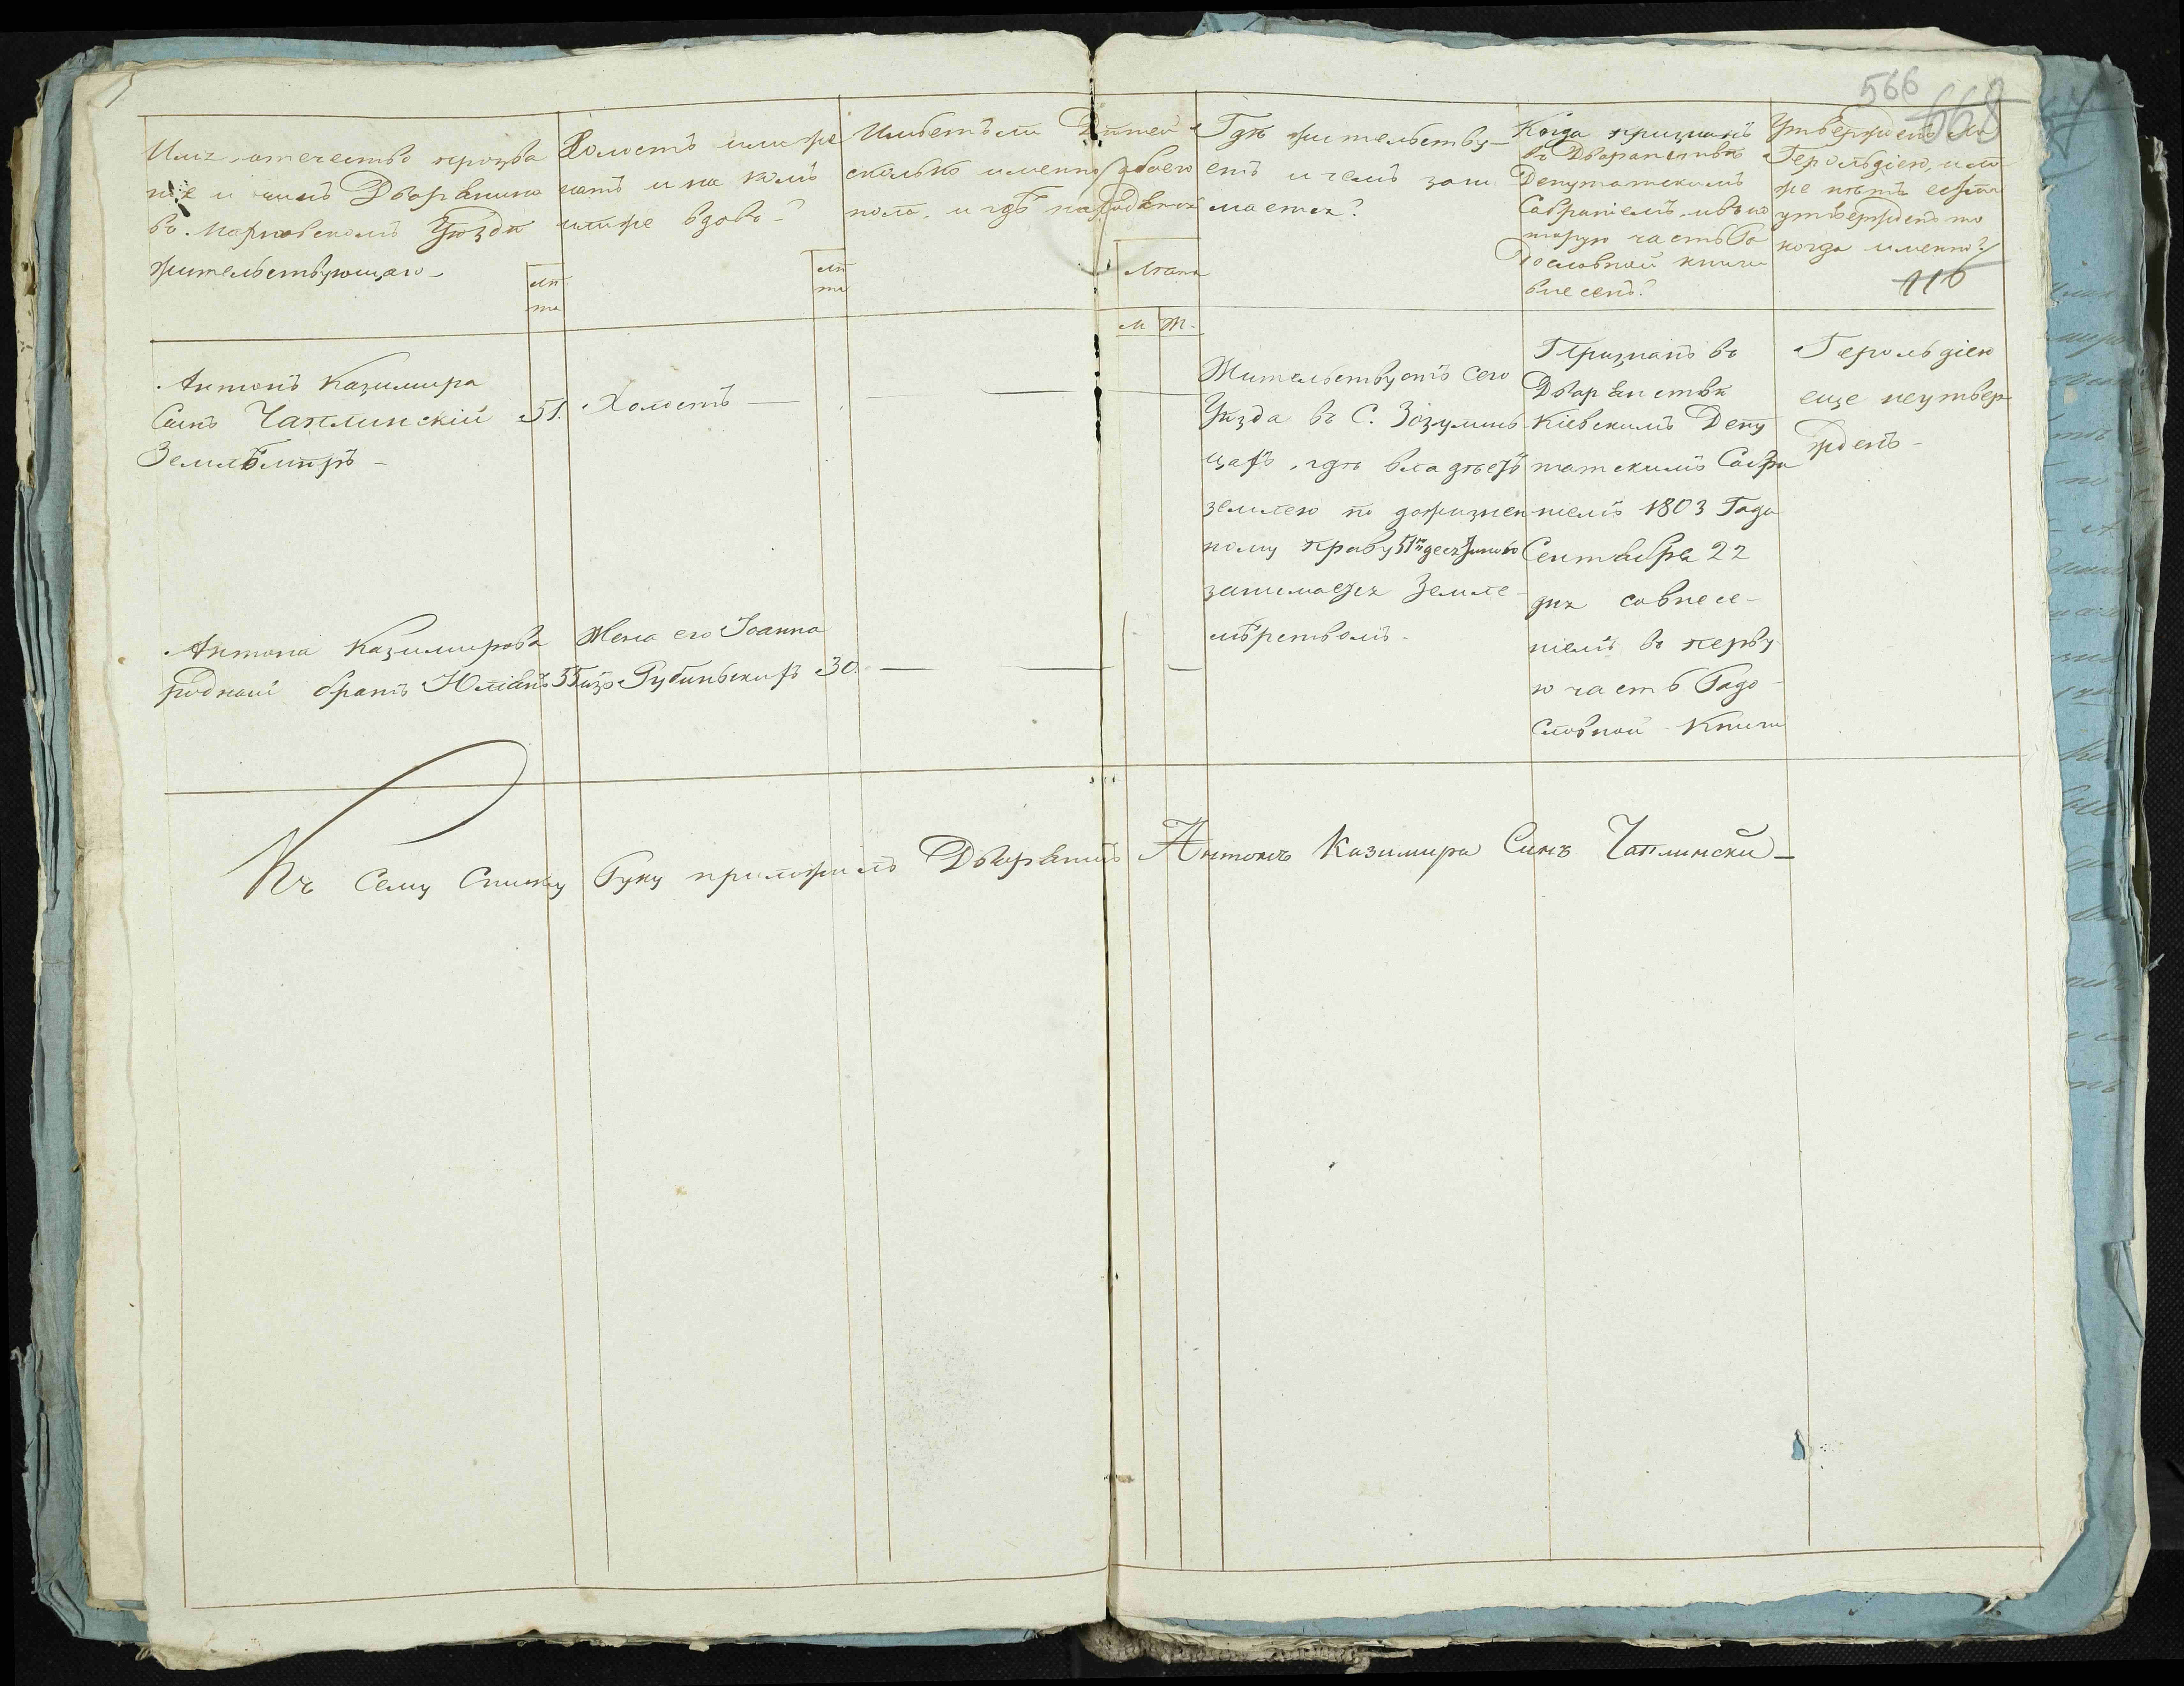 566
668
Имя, отечество прозва
ніе и чинъ Дворянина
въ Махновскомъ Уѣзде
жительствующаго
лѣ
та
Холостъ или же
натъ и на комъ
или же вдовъ?
лѣ
та
Имѣетъ ли Дѣтей
сколько именно обоего
пола, и гдѣ находятся
Лѣта
м ж
Гдѣ жительству-
етъ и чемъ зани
мается?
Когда признанъ
въ Дворянствѣ
Депутатскимъ
Собраніемъ, и въ ко
торую часть Ро
дословной книги
внесенъ?
Утвержденъ ли
Герольдіею, или
же нѣтъ если
утвержденъ то
когда именно?
116
Антонъ Казимира
Сынъ Чаплинскій 51.
Землемѣръ -
Холостъ —
Жительствуетъ сего
Уѣзда въ С. Зозулинь
цахъ, гдѣ владѣетъ
землею по дожизнен
ному праву
занимается Земле-
мѣрствомъ.
Признанъ въ
Дворянствѣ
Кіевскимъ Депу
татскимъ Собра
ніемъ 1803 Года
Сентября 22
дня совнесе-
ніемъ въ перву
ю часть Родо-
Словной Книги
Герольдіею
еще неутвер
жденъ -
Антона Казимирова
родной братъ Юліанъ 55
Жена его Іоанна
изъ Рубиньскихъ 30. —
Къ Сему Списку Руку приложилъ Дворянинъ Антонъ Казимира Сынъ Чаплински —